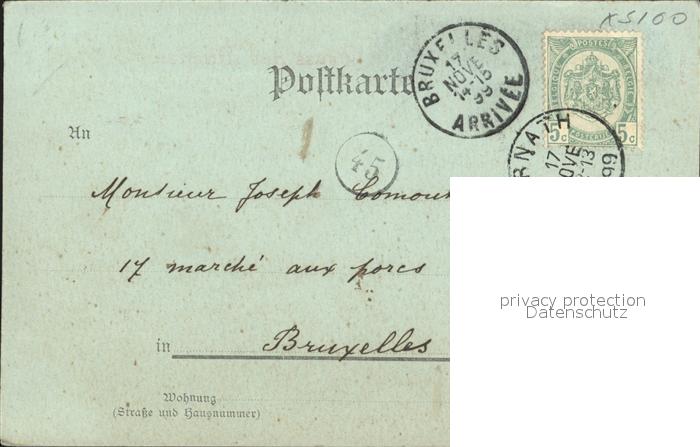 x5100
BRUXELLES
17
NOVE
14-15
99
ARRIVÉE
Postkarte
BELGIQUE POSTES BELGIË
5c 5c
POSTERIJEN
RNATH
17
NOVE
-13
99
An
45
Monsieur Joseph
17 marché aux porcs
in Bruxelles
privacy protection
Datenschutz
Wohnung
(Straße und Hausnummer)